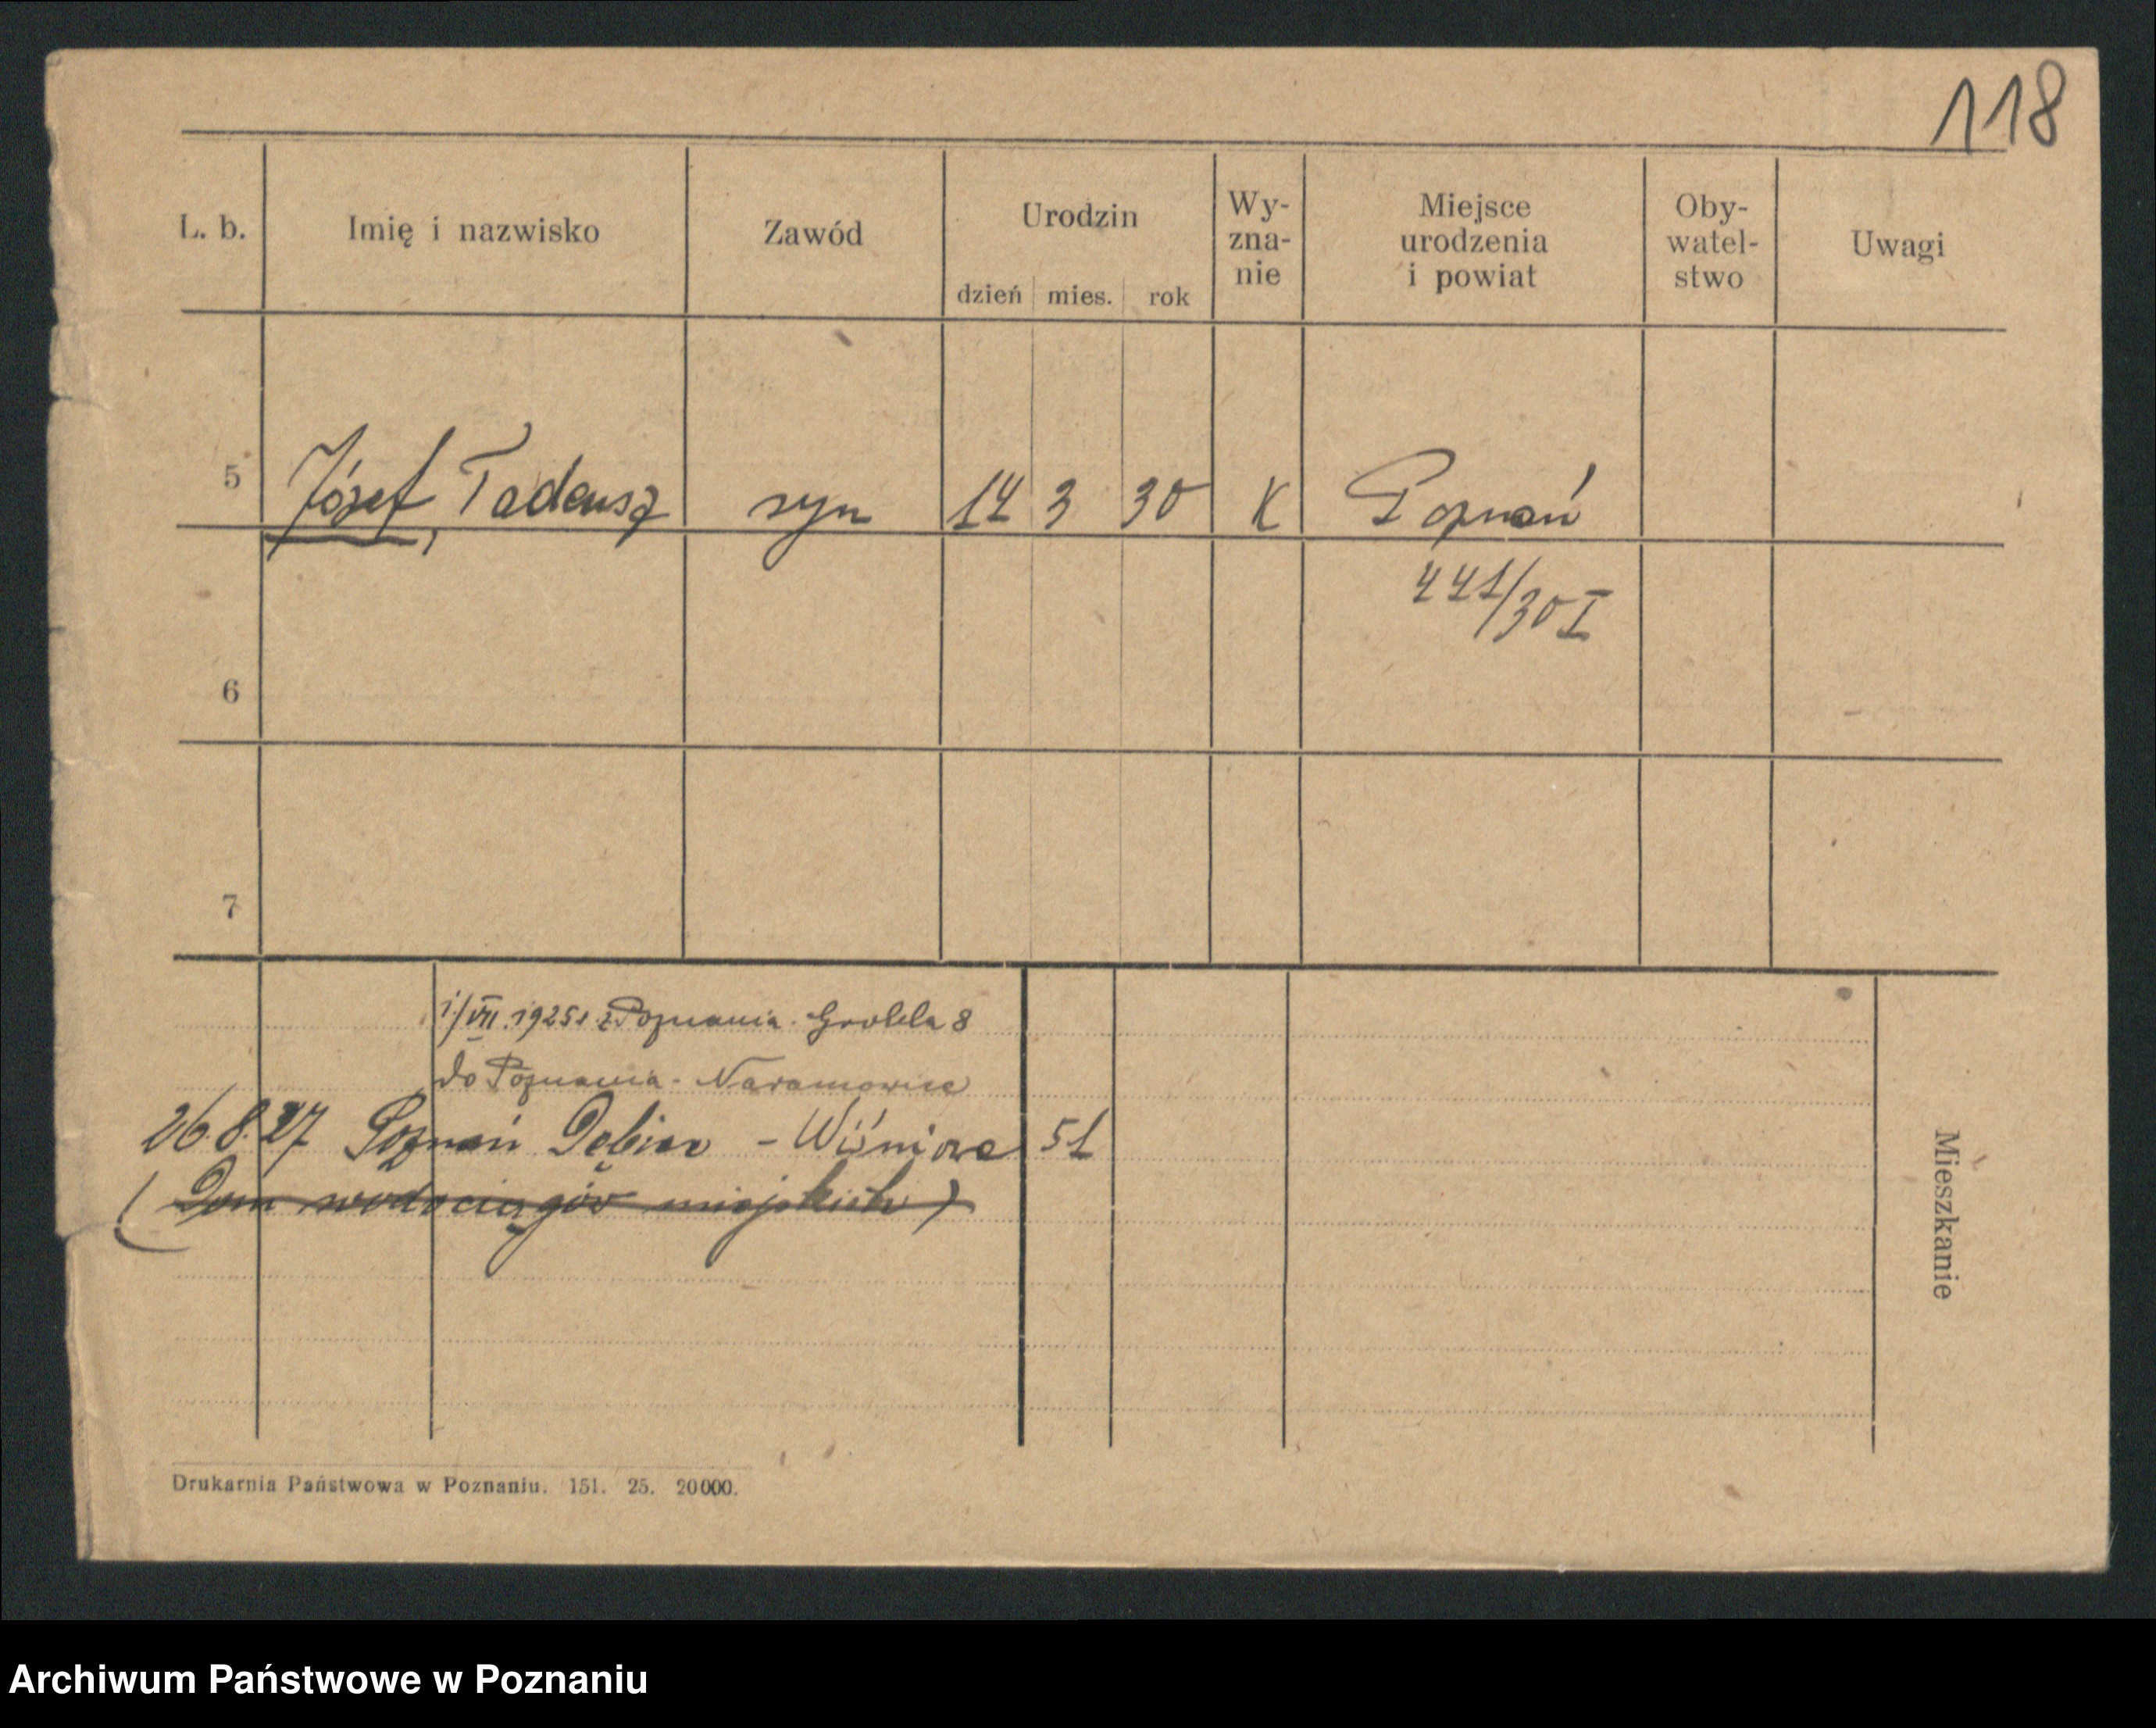 118
L. b. Imię i nazwisko Zawód Urodzin dzień mies. rok Wy-zna-nie Miejsce urodzenia i powiat Oby-watel-stwo Uwagi
5 Józef, Tadeusz syn 14 3 30 K Poznań
441/30 I
6
7
1/VII. 1925 z Poznania. Grobla 8
do Poznania - Naramowice
26.8.27 Poznań Dębiec - Wiśniowa 51
(Dom wodociągów miejskich)
Mieszkanie
Drukarnia Państwowa w Poznaniu. 151. 25. 20000.
Archiwum Państwowe w Poznaniu